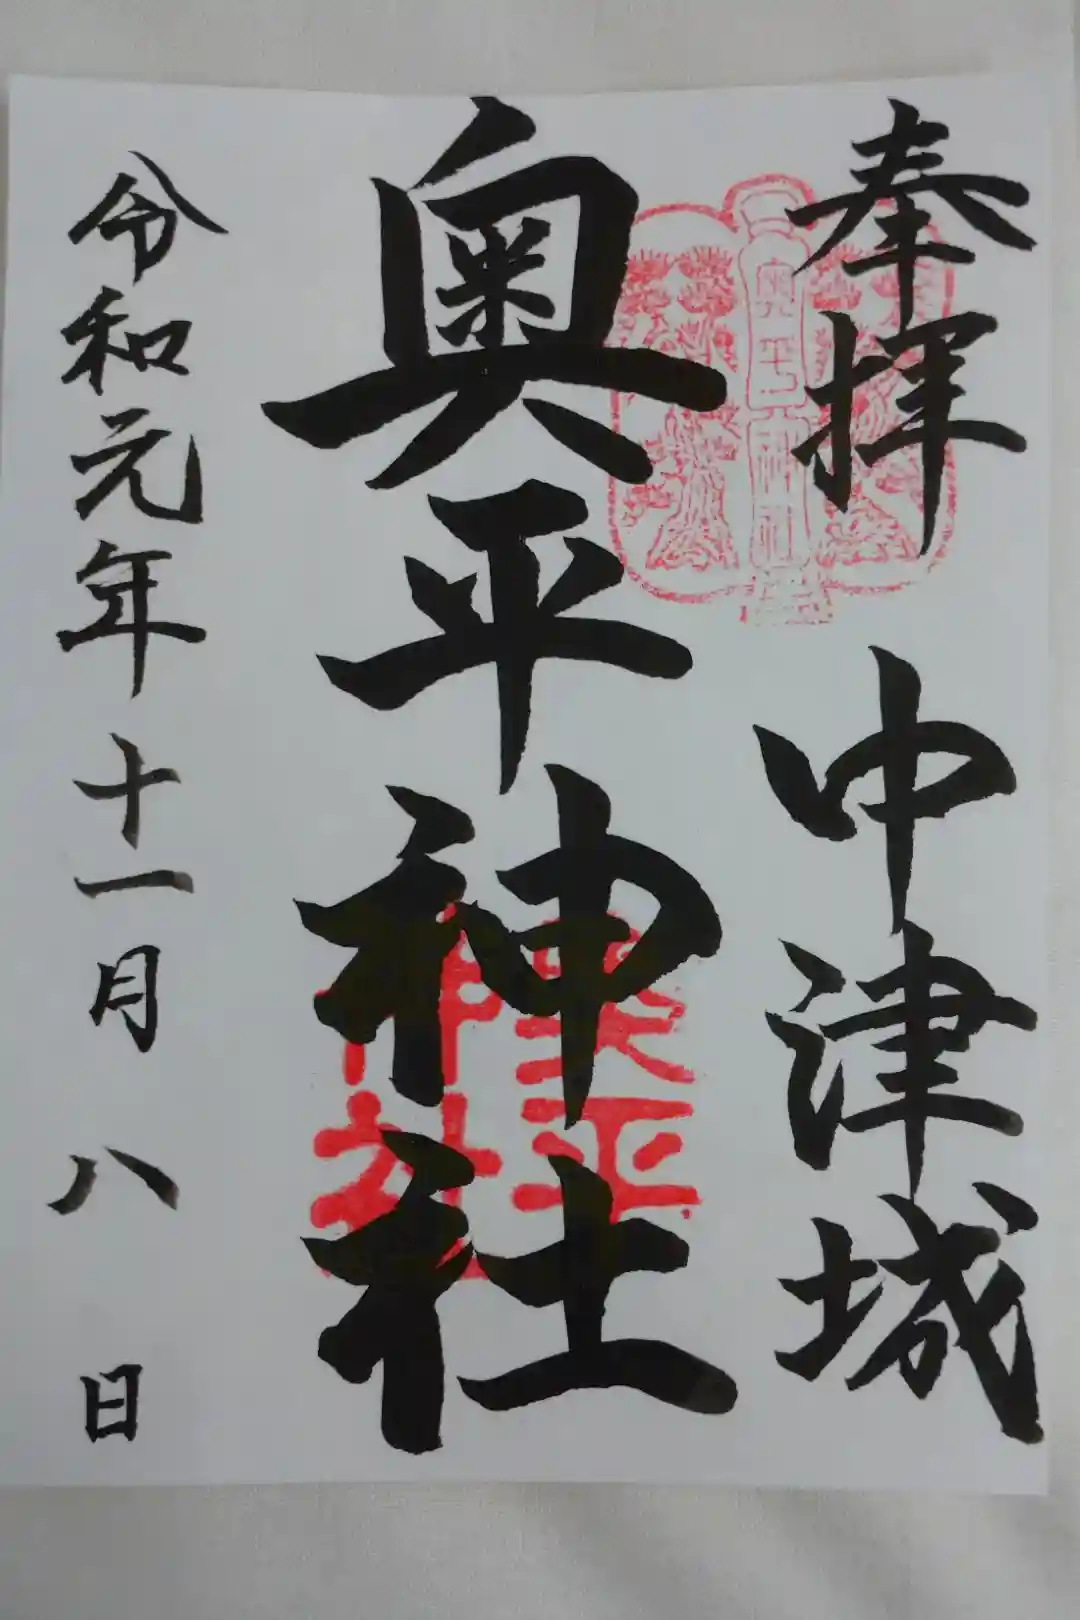 奉拝
中津城
奥平神社
奥平神社
奥平神社
令和元年十一月八日